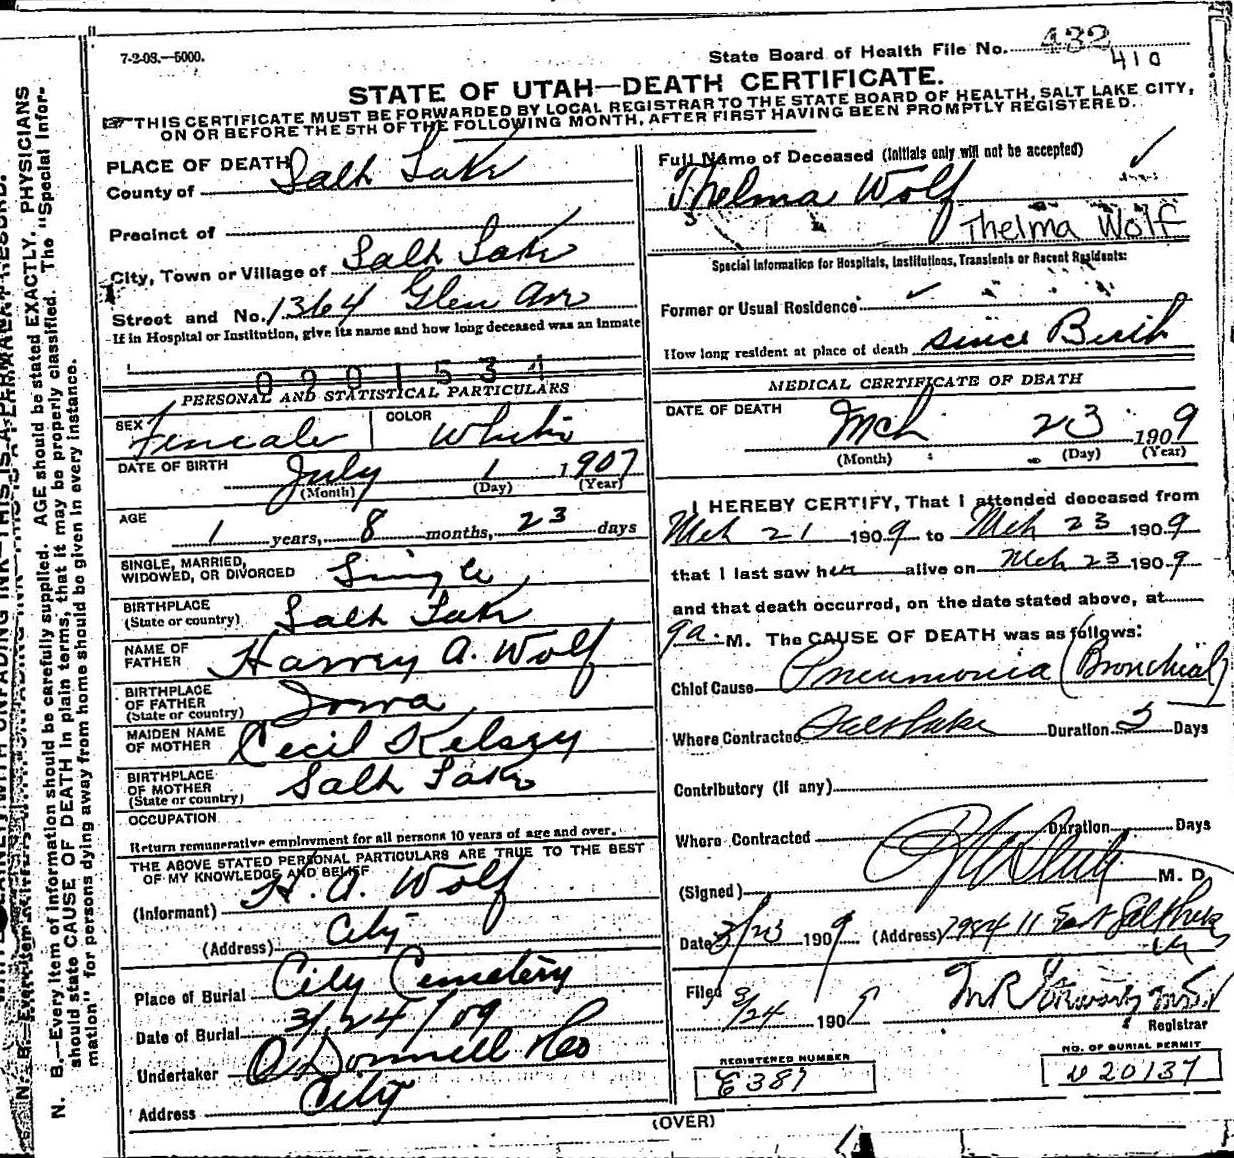 7-2-08.—5000.
State Board of Health File No. 432
410
STATE OF UTAH—DEATH CERTIFICATE.
THIS CERTIFICATE MUST BE FORWARDED BY LOCAL REGISTRAR TO THE STATE BOARD OF HEALTH, SALT LAKE CITY,
ON OR BEFORE THE 5TH OF THE FOLLOWING MONTH, AFTER FIRST HAVING BEEN PROMPTLY REGISTERED.
PLACE OF DEATH
County of Salt Lake
Precinct of
City, Town or Village of Salt Lake
Street and No. 1364 Glen Ave
If in Hospital or Institution, give its name and how long deceased was an inmate
0201534
PERSONAL AND STATISTICAL PARTICULARS
SEX Female COLOR White
DATE OF BIRTH July 1 1907
(Month) (Day) (Year)
AGE 1 years, 8 months, 23 days
SINGLE, MARRIED,
WIDOWED, OR DIVORCED Single
BIRTHPLACE
(State or country) Salt Lake
NAME OF
FATHER Harvey A. Wolf
BIRTHPLACE
OF FATHER
(State or country) Iowa
MAIDEN NAME
OF MOTHER Cecil Kelsey
BIRTHPLACE
OF MOTHER
(State or country) Salt Lake
OCCUPATION
Return remunerative employment for all persons 10 years of age and over.
THE ABOVE STATED PERSONAL PARTICULARS ARE TRUE TO THE BEST
OF MY KNOWLEDGE AND BELIEF
(Informant) H. A. Wolf
(Address) City
Place of Burial City Cemetery
Date of Burial 3/24/09
Undertaker O'Donnell & Co
Address City
Full Name of Deceased (Initials only will not be accepted)
Thelma Wolf
Thelma Wolf
Special Information for Hospitals, Institutions, Transients or Recent Residents:
Former or Usual Residence
How long resident at place of death since Birth
MEDICAL CERTIFICATE OF DEATH
DATE OF DEATH
Mch 23 1909
(Month) (Day) (Year)
I HEREBY CERTIFY, That I attended deceased from
Mch 21 1909 to Mch 23 1909
that I last saw her alive on Mch 23 1909
and that death occurred, on the date stated above, at
9 a. M. The CAUSE OF DEATH was as follows:
Chief Cause Pneumonia (Bronchial)
Where Contracted Salt Lake Duration 3 Days
Contributory (if any)
Where Contracted Duration Days
(Signed) M. D.
Date 3/23 1909 (Address) East Salt Lake
Filed 3/24 1909
Registrar
REGISTERED NUMBER
E 387
NO. OF BURIAL PERMIT
20137
(OVER)
N. B.—Every item of information should be carefully supplied. AGE should be stated EXACTLY. PHYSICIANS
should state CAUSE OF DEATH in plain terms, that it may be properly classified. The "Special Infor-
mation" for persons dying away from home should be given in every instance.